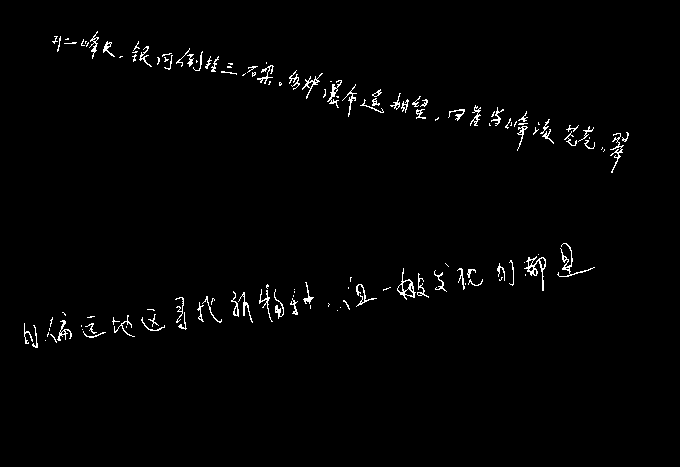 开二峰长,银河倒挂三石梁。香炉瀑布遥相望,回崖沓嶂凌苍苍。翠
的偏远地区寻找新物种,但一般发现的都是